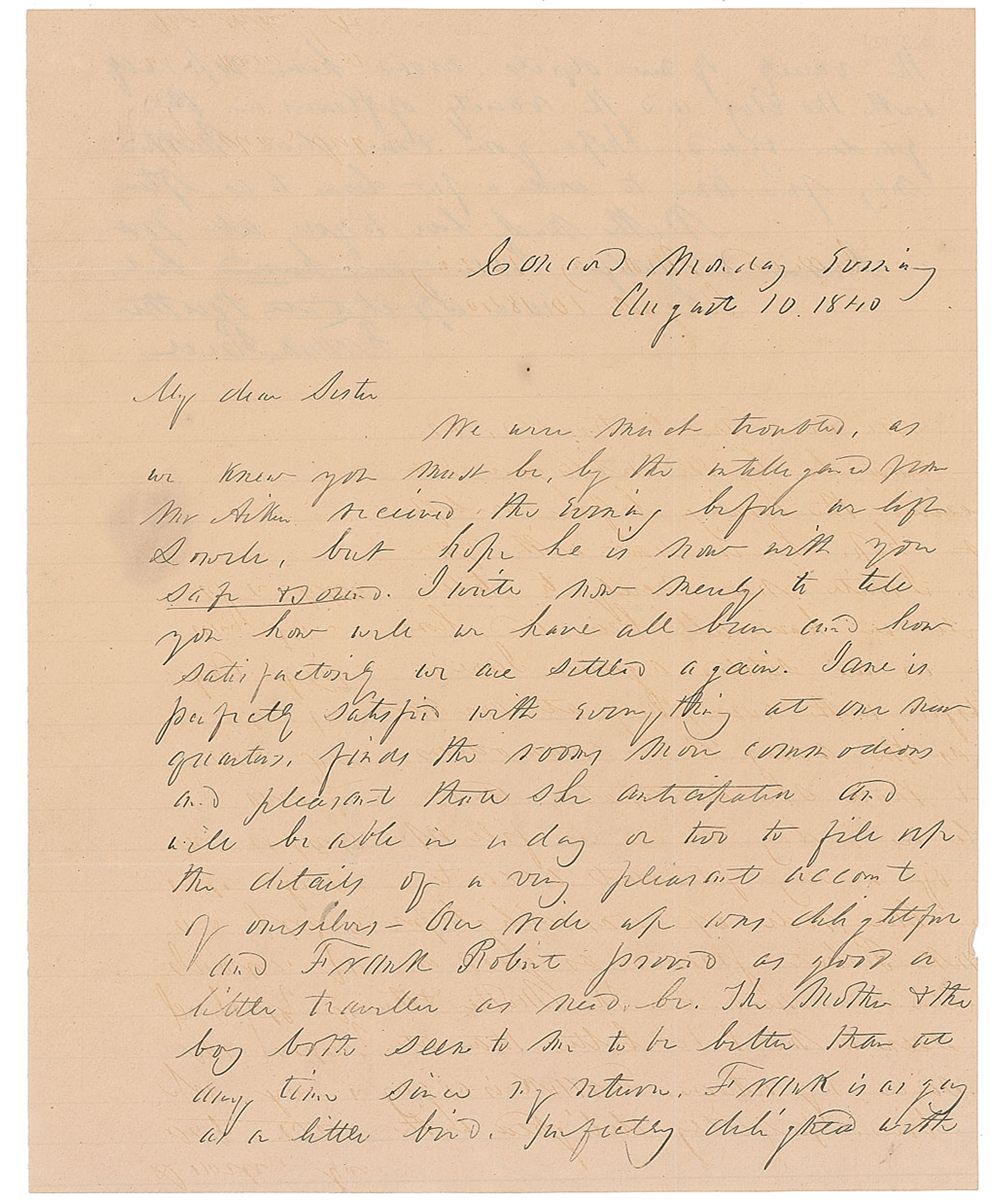 Concord Monday Evening
August 10. 1840
My dear Sister
We were much troubled, as
we knew you must be, by the intelligence from
Mr Aiken received the Evening before we left
Lowell, but hope he is now with you
safe & sound. I write now merely to tell
you how well we have all been and how
satisfactorily we are settled again. Jane is
perfectly satisfied with everything at our new
quarters, finds the rooms more commodious
and pleasant than she anticipated and
will be able in a day or two to fill up
the details of a very pleasant account
of ourselves - Our ride up was delightful
and Frank Robert proved as good a
little traveller as need be. The Mother & the
boy both seem to me to be better than at
any time since my return. Frank is as gay
as a little bird, perfectly delighted with